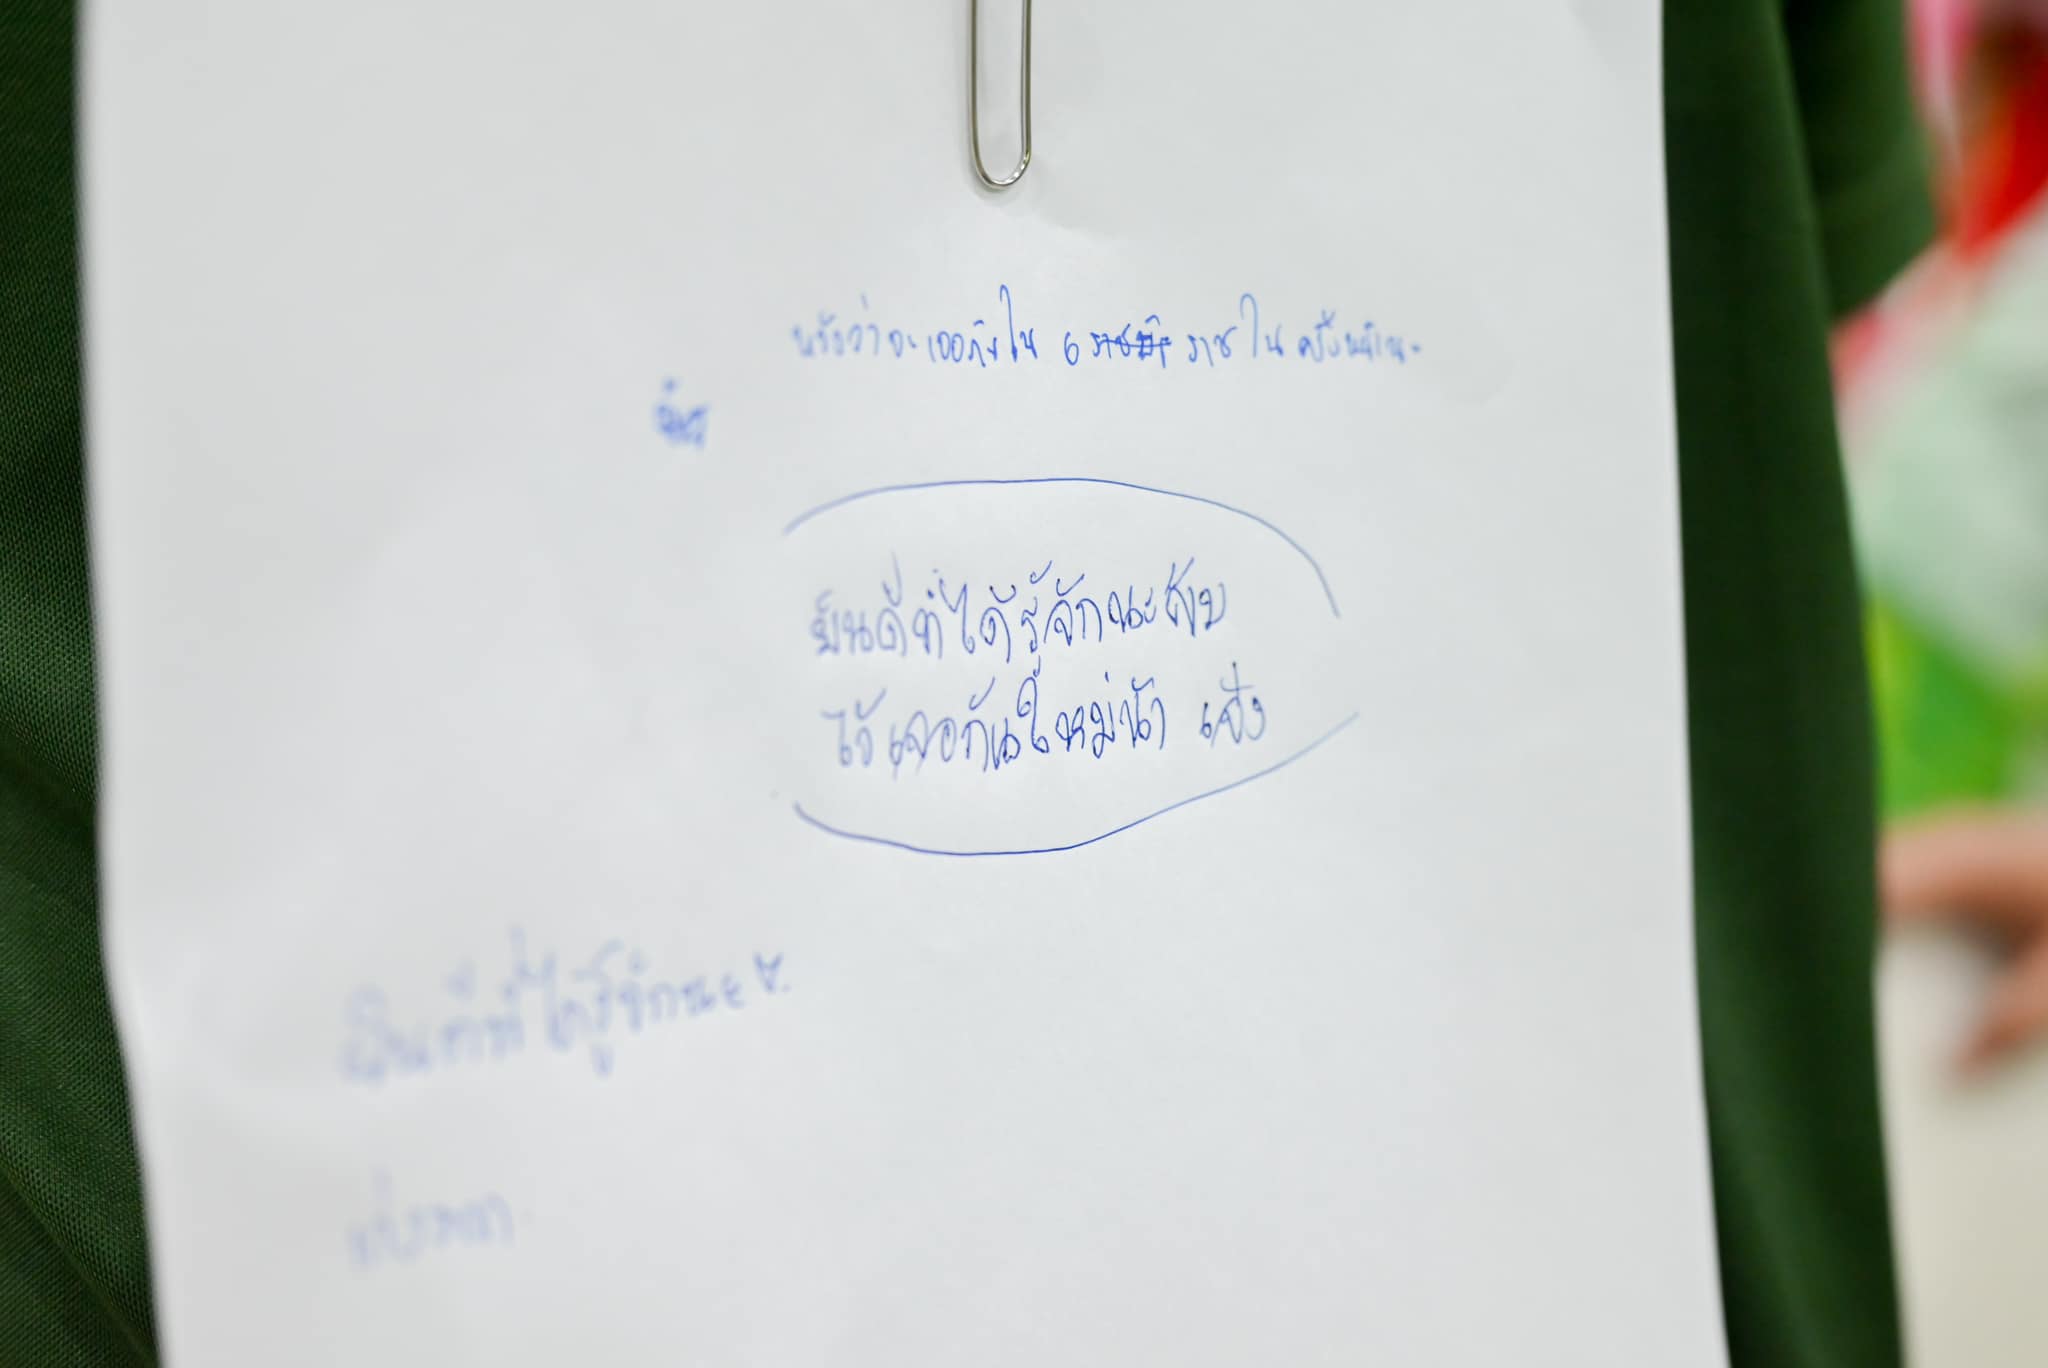 หวังว่าจะเจอกันใน 6 ราชใน ครั้งหน้านะ
ยินดีที่ได้รู้จักนะครับ
ไว้เจอกันใหม่น้า
ยินดีที่ได้รู้จักนะ